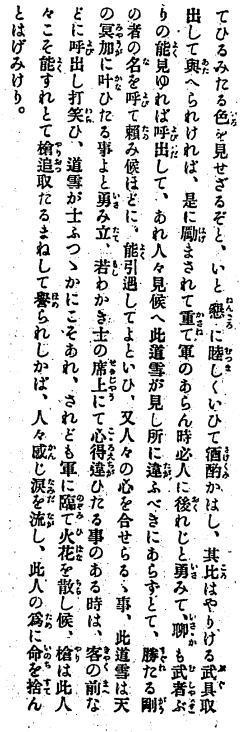 てひるみたる色を見せざるぞと、いと懇に睦しくいひて酒酌かはし、其比はやりける武具取
出して與へられければ、是に勵まされて重て軍のあらん時必人に後れじと勇みて、聊も武者ぶ
りの能見ゆれば呼出して、あれ人々見候へ此道雪が見し所に違ふべきにあらずとて、勝たる剛
の者の名を呼て賴み候ほどに、能引過してよといひ、又人々の心を合せらるゝ事、此道雪は天
の冥加に叶ひたる事よと勇み立、若わかき士の席上にて心得違ひたる事のある時は、客の前な
どに呼出し打笑ひ、道雪が士ふつゝかにこそあれ、されども軍に臨て火花を散し候、槍は此人
々こそ能すれとて槍追取たるまねして譽られしかば、人々感じ淚を流し、此人の爲に命を拾ん
とはげみけり。